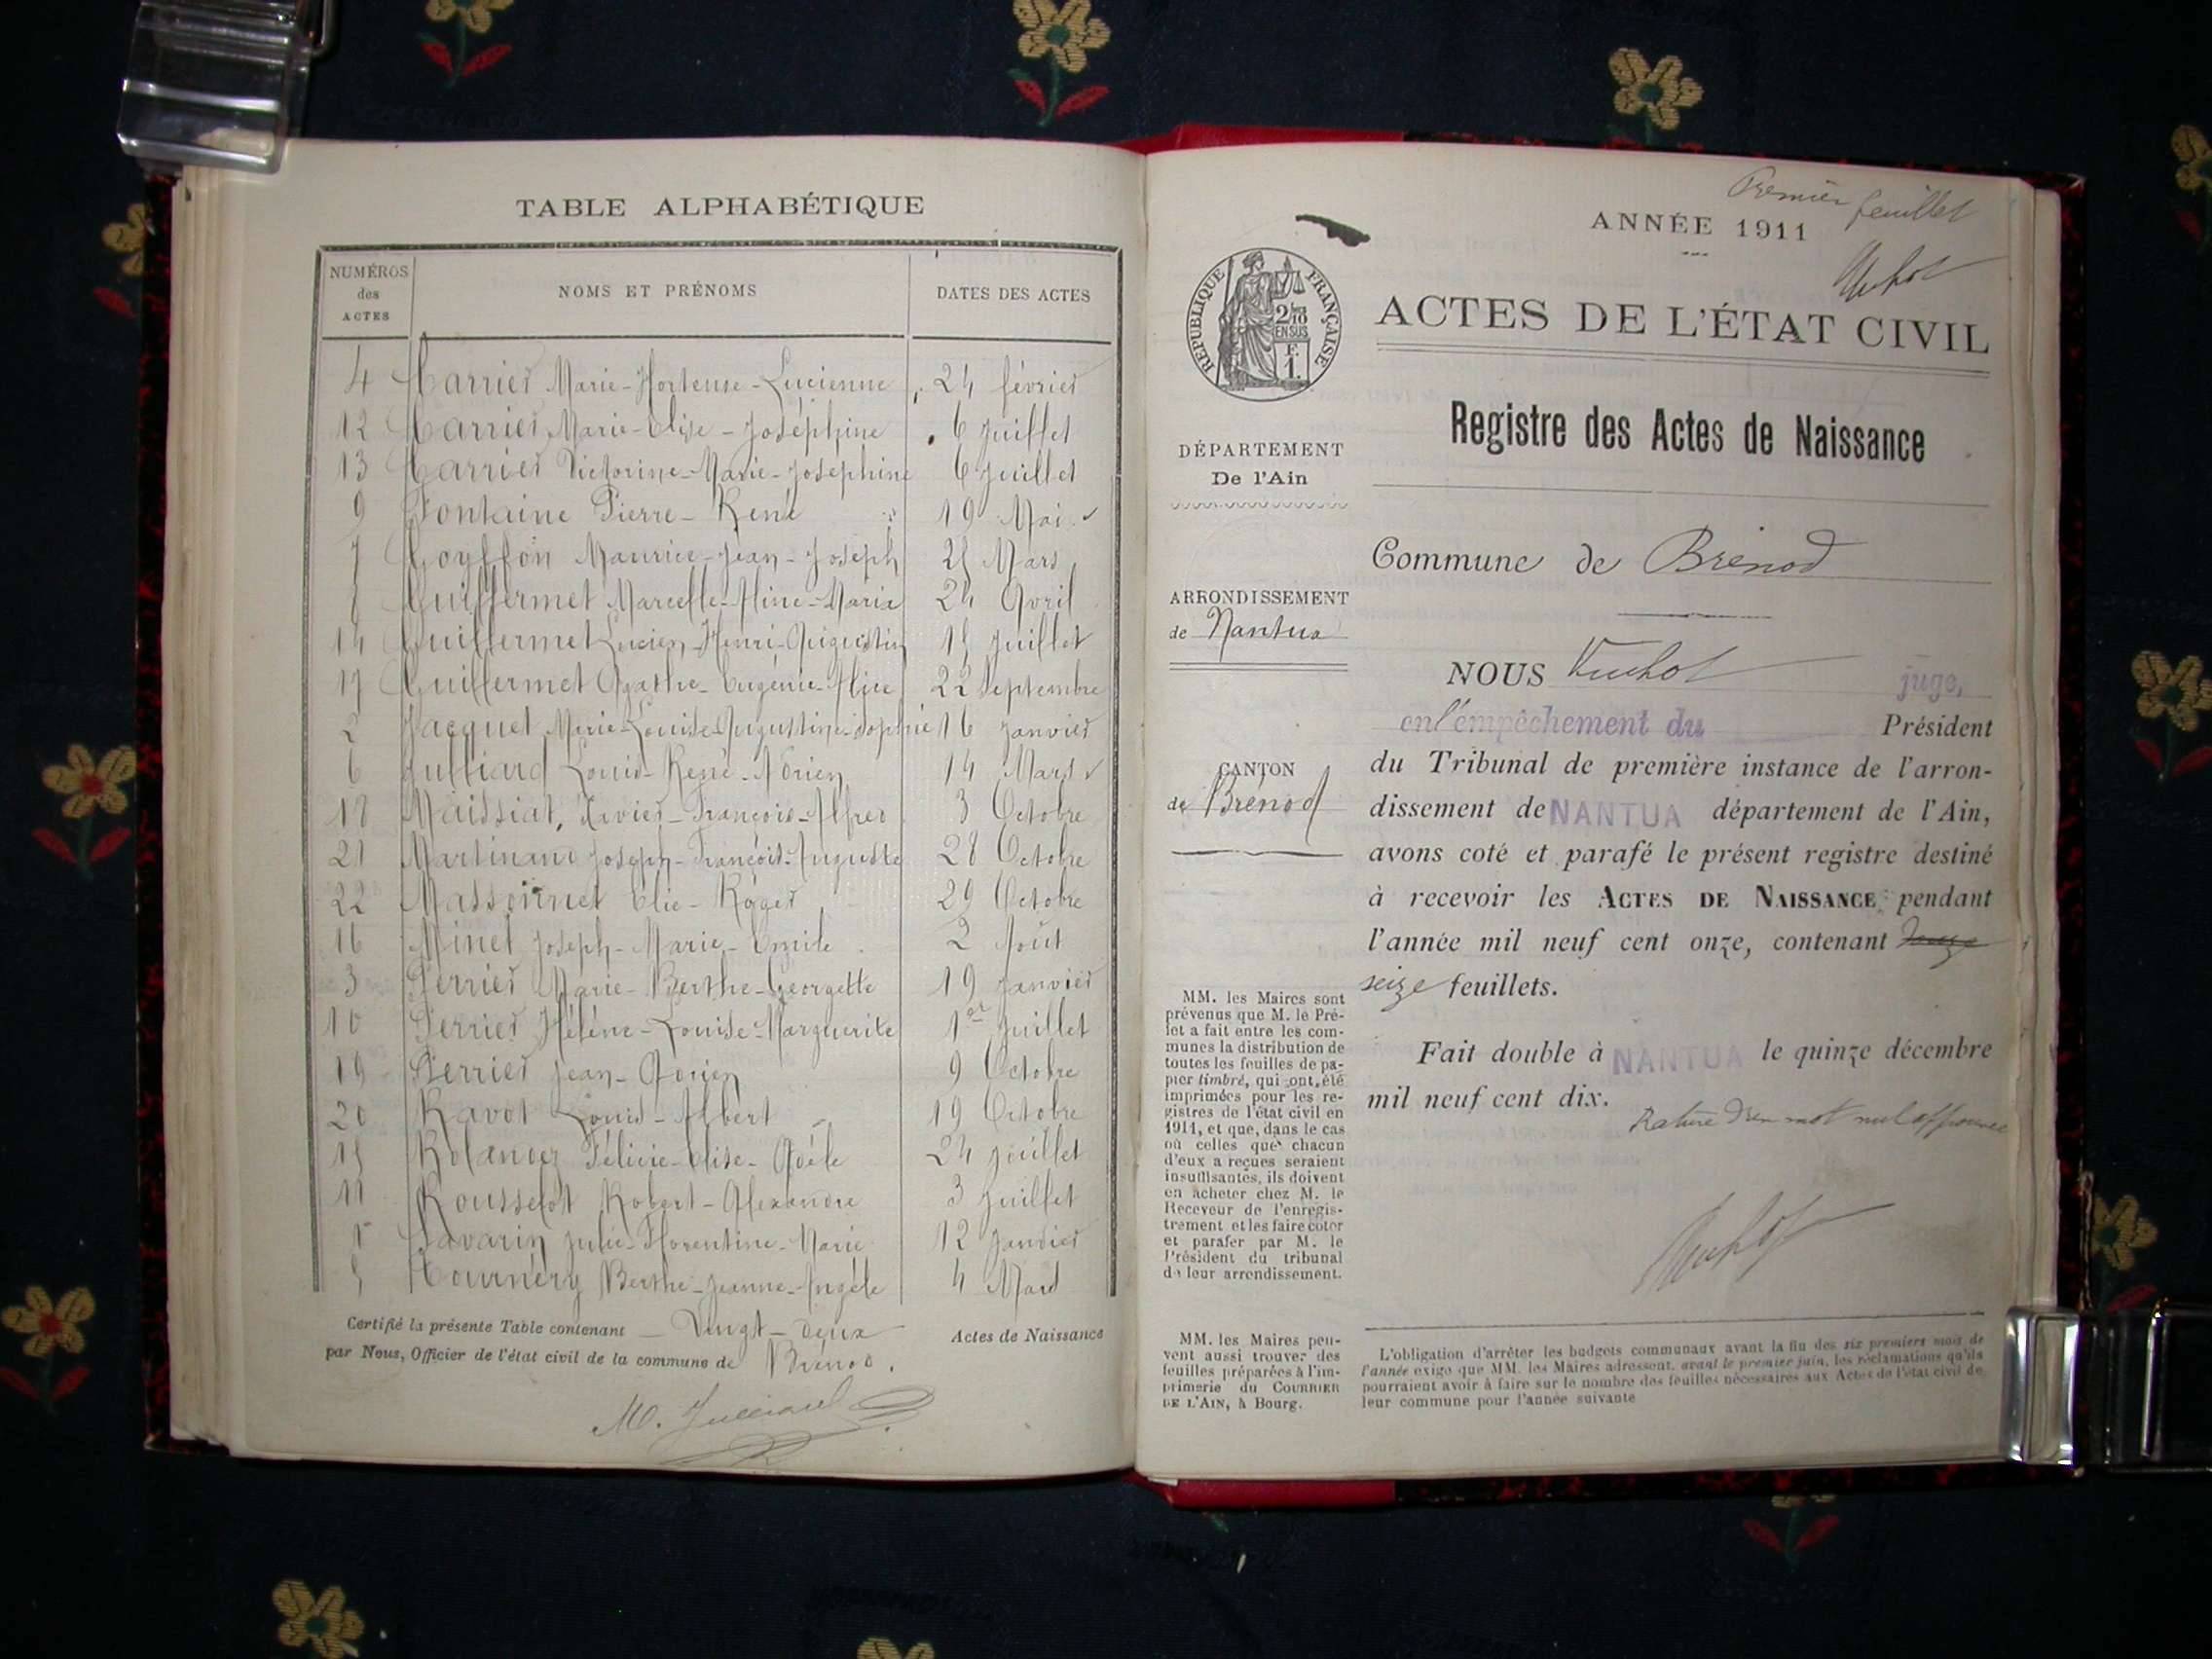 TABLE ALPHABÉTIQUE
NUMÉROS des ACTES NOMS ET PRÉNOMS DATES DES ACTES
4 Carrier Marie-Hortense-Lucienne 24 février
12 Carrier Marie-Elise-Joséphine 6 Juillet
13 Carrier Victorine-Marie-Joséphine 6 Juillet
9 Fontaine Pierre-René 19 Mai
7 Goyffon Maurice-Jean-Joseph Mars
Guillermet Marcelle-Aline-Maria 24 Avril
14 Guillermet Lucien-Henri-Augustin Juillet
17 Guillermet Agathe-Eugénie-Alice 22 Septembre
2 Jacquet Marie-Louise-Augustine-Sophie 16 Janvier
6 Julliard Louis-René-Adrien 14 Mars
18 Maissiat, Xavier-François-Alfred 3 Octobre
21 Martinand Joseph-François-Auguste 28 Octobre
22 Massonnet Elie-Roger 29 Octobre
16 Minet Joseph-Marie-Emile 2 Août
3 Perrier Marie-Berthe-Georgette 19 Janvier
10 Perrier Hélène-Louise-Marguerite 1er Juillet
19 Perrier Jean-Adrien 9 Octobre
20 Ravot Louis-Albert 19 Octobre
15 Rolandez Félicie-Elise-Adèle 24 Juillet
11 Rousselot Robert-Alexandre 3 Juillet
1 Savarin Julie-Florentine-Marie 12 Janvier
5 Tournery Berthe-Jeanne-Angèle 4 Mars
Certifié la présente Table contenant Vingt-deux Actes de Naissance
par Nous, Officier de l'état civil de la commune de Brénod.
M. Julliard
Premier feuillet
ANNÉE 1911
ACTES DE L'ÉTAT CIVIL
RÉPUBLIQUE FRANÇAISE
2/10
EN SUS
F.
1.
Registre des Actes de Naissance
DÉPARTEMENT
De l'Ain
Commune de Brénod
ARRONDISSEMENT
de Nantua
NOUS juge,
en l'empêchement du Président
CANTON
de Brénod
du Tribunal de première instance de l'arron-
dissement de NANTUA département de l'Ain,
avons coté et parafé le présent registre destiné
à recevoir les ACTES DE NAISSANCE pendant
l'année mil neuf cent onze, contenant
seize feuillets.
Fait double à NANTUA le quinze décembre
mil neuf cent dix.
Rature d'un mot nul approuvée
MM. les Maires sont
prévenus que M. le Pré-
fet a fait entre les com-
munes la distribution de
toutes les feuilles de pa-
pier timbré, qui ont été
imprimées pour les re-
gistres de l'état civil en
1911, et que, dans le cas
où celles que chacun
d'eux a reçues seraient
insuffisantes, ils doivent
en acheter chez M. le
Receveur de l'enregis-
trement et les faire coter
et parafer par M. le
Président du tribunal
de leur arrondissement.
MM. les Maires peu-
vent aussi trouver des
feuilles préparées à l'im-
primerie du COURRIER
DE L'AIN, à Bourg.
L'obligation d'arrêter les budgets communaux avant la fin des six premiers mois de
l'année exige que MM. les Maires adressent, avant le premier juin, les réclamations qu'ils
pourraient avoir à faire sur le nombre des feuilles nécessaires aux Actes de l'état civil de
leur commune pour l'année suivante